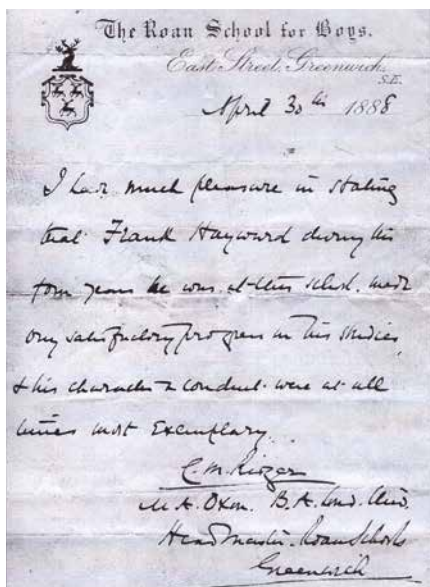 The Roan School for Boys.
East Street, Greenwich,
S.E.
April 30th 1888
I have much pleasure in stating
that Frank Hayward during the
four years he was at this school made
very satisfactory progress in his studies,
& his character & conduct were at all
times most Exemplary.
C. M. Ridger
M. A. Oxon. B. A. Lond. Univ.
Head master. Roan Schools
Greenwich